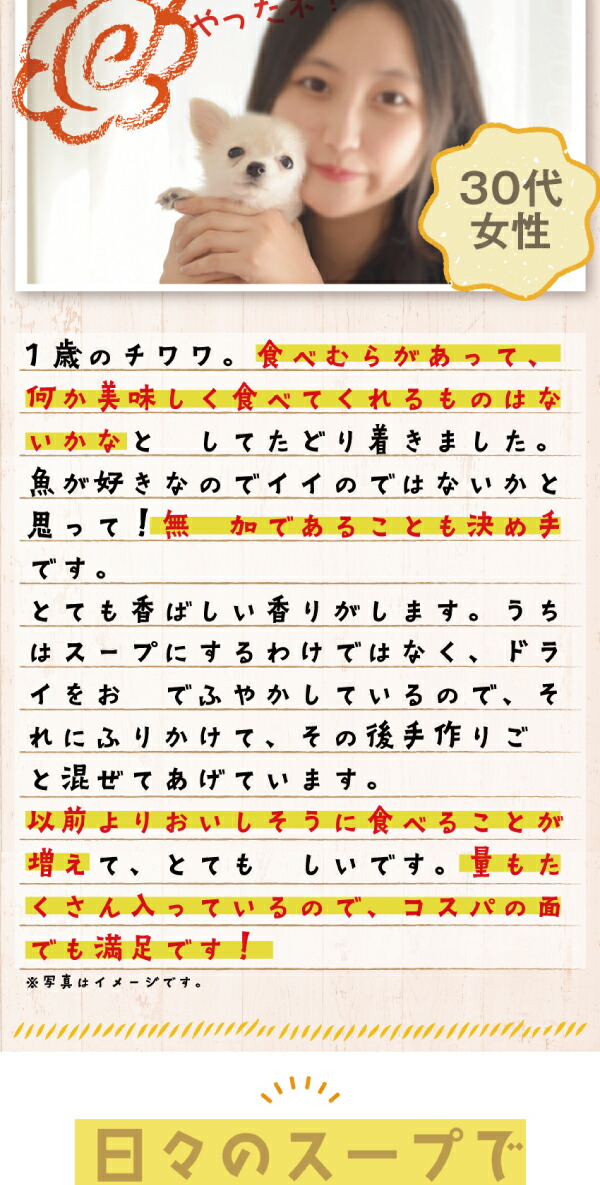 やったネ！
30代
女性
1歳のチワワ。食べむらがあって、
何か美味しく食べてくれるものはな
いかなと　してたどり着きました。
魚が好きなのでイイのではないかと
思って！無　加であることも決め手
です。
とても香ばしい香りがします。うち
はスープにするわけではなく、ドラ
イをお　でふやかしているので、そ
れにふりかけて、その後手作りご
と混ぜてあげています。
以前よりおいしそうに食べることが
増えて、とても　しいです。量もた
くさん入っているので、コスパの面
でも満足です！
※写真はイメージです。
日々のスープで